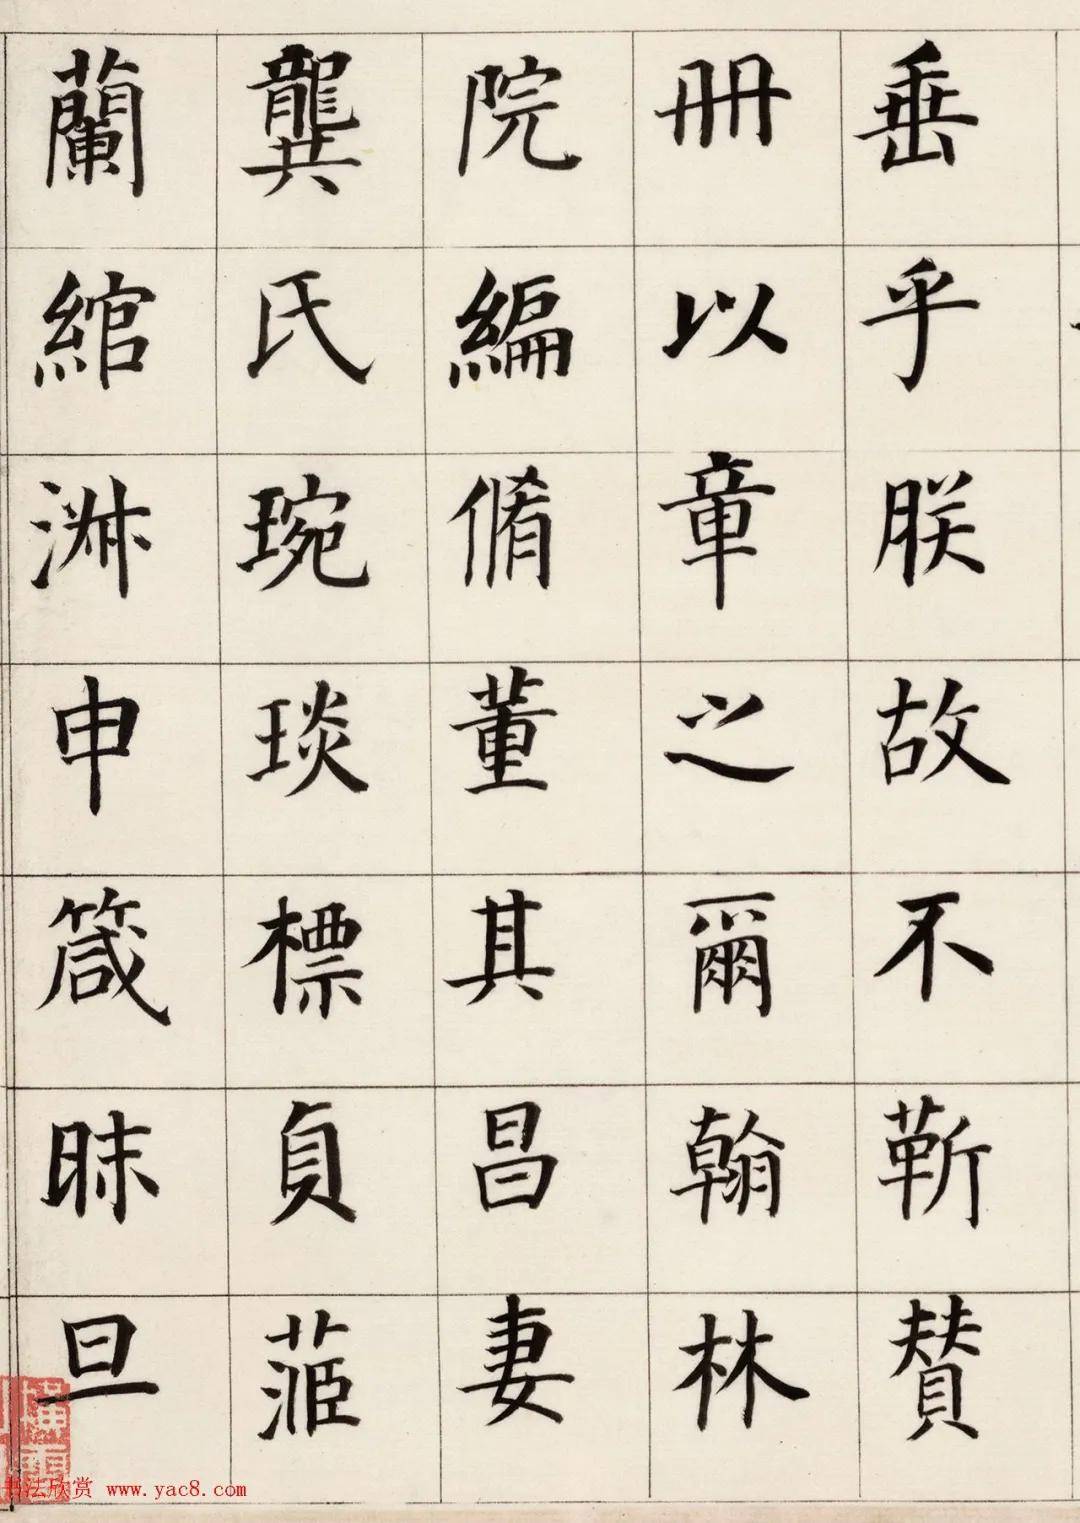 垂乎朕故不靳贊
冊以章之爾翰林
院編脩董其昌妻
龔氏琬琰標貞茝
蘭綰淋申箴昧旦
书法欣赏 www.yac8.com